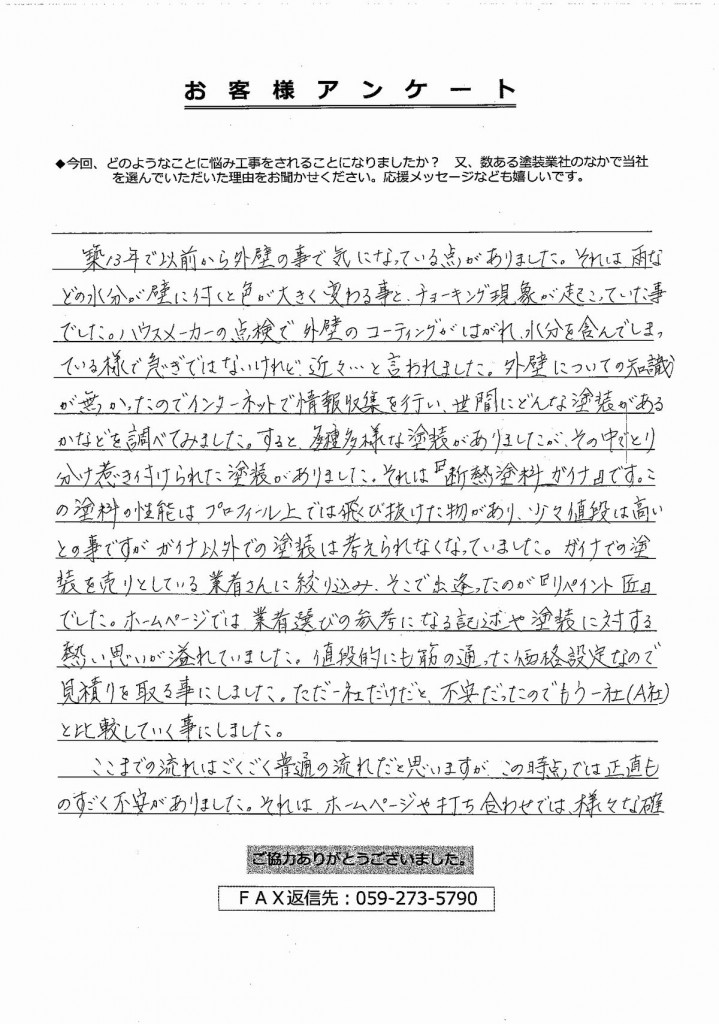 お客様アンケート
◆今回、どのようなことに悩み工事をされることになりましたか？　又、数ある塗装業社のなかで当社
を選んでいただいた理由をお聞かせください。応援メッセージなども嬉しいです。
築13年で以前から外壁の事で気になっている点がありました。それは雨な
どの水分が壁に付くと色が大きく変わる事と、チョーキング現象が起こっていた事
でした。ハウスメーカーの点検で外壁のコーティングがはがれ、水分を含んでしまっ
ている様で急ぎではないけれど、近々…と言われました。外壁についての知識
が無かったのでインターネットで情報収集を行い、世間にどんな塗装がある
かなどを調べてみました。すると、多種多様な塗装がありましたが、その中でとり
分け惹き付けられた塗装がありました。それは『断熱塗料ガイナ』です。こ
の塗料の性能はプロフィール上では飛び抜けた物があり、少々値段は高い
との事ですがガイナ以外での塗装は考えられなくなっていました。ガイナでの塗
装を売りとしている業者さんに絞り込み、そこで出逢ったのが『リペイント匠』
でした。ホームページでは業者選びの参考になる記述や塗装に対する
熱い思いが溢れていました。値段的にも筋の通った価格設定なので
見積りを取る事にしました。ただ一社だけだと、不安だったのでもう一社(A社)
と比較していく事にしました。
ここまでの流れはごくごく普通の流れだと思いますが、この時点では正直も
のすごく不安がありました。それは、ホームページや打ち合わせでは、様々な確
ご協力ありがとうございました。
FAX返信先：059-273-5790